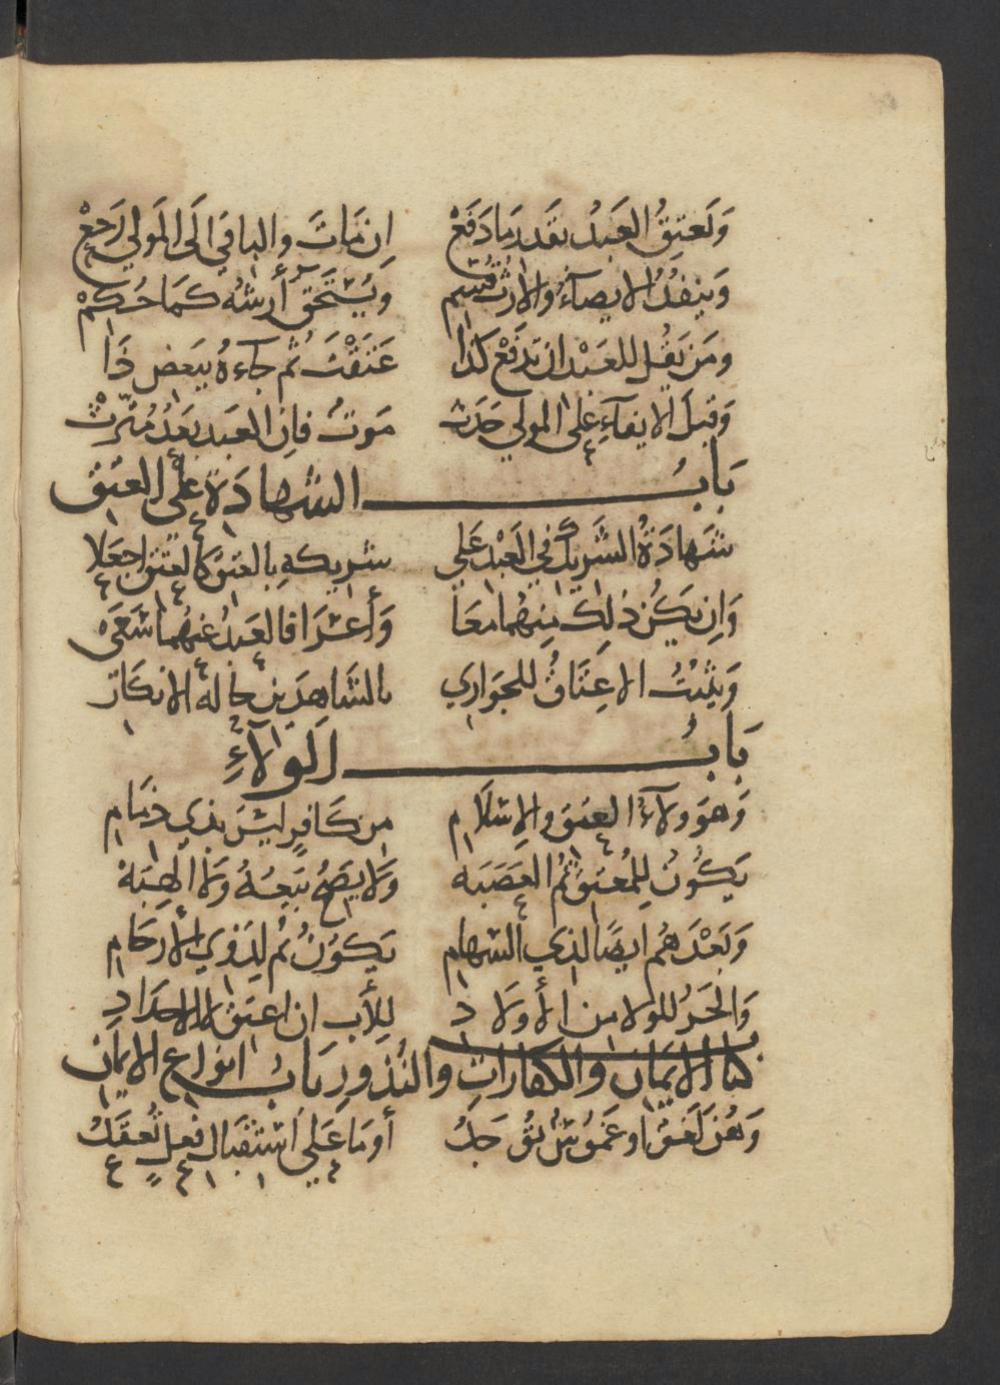 وَلَعتِقُ العَبدُ بقَدرِ مَا دَفَعْ ان مَاتَ والباقي الَى المَولي رَجعْ
وَينفُذُ الايصآءُ والارثُ قُسِم وَيُستَحَقّ أرشُه كمَا حُكمْ
ومَن يَقُل للعَبْد ان تَدفَعْ كذا عَتَقْتَ ثم جآءهُ ببَعض ذَا
وَقبلَ الايفآءِ على المولي حَدَث مَوتٌ فانِ العَبد بَعدُ
بَابُ الشهادَة على العتق
شَهادَةُ الشَريك في العَبْد عَلي شريكهِ بالعتق كالعتق اجعَلا
وَإن يَكُن ذلك مِنهُما معَا وَأعسَرا فالعَبدُ عنهُما سَعَى
وَيثبتُ الاعِتَاقُ للجوَاري بالشَاهدَين حاله الانكار
بَابُ الولآءِ
وَهوَ ولآءُ العِتق والإسلام من كَافرٍ ليسَ بذي ذمَام
يَكُونُ لِلمُعتِق ثُمّ العَصَبَه وَلَا يصَحُّ بَيعُهُ وَلَا الهبَهْ
وَبَعْدَهُم ايضًا لذي السّهام يَكونُ ثم لِذوي الأرحام
وَالجَدُّ للولا من الأولاد للأب ان اعتق لا الاجدَادِ
كتاب الايمان والكفارات والنُذور بَابُ انواع الايمان
وَهُن لَغوٌ او غمُوسٌ أو مَا عَلي استقبَال فعلٍ تُعقَدُ